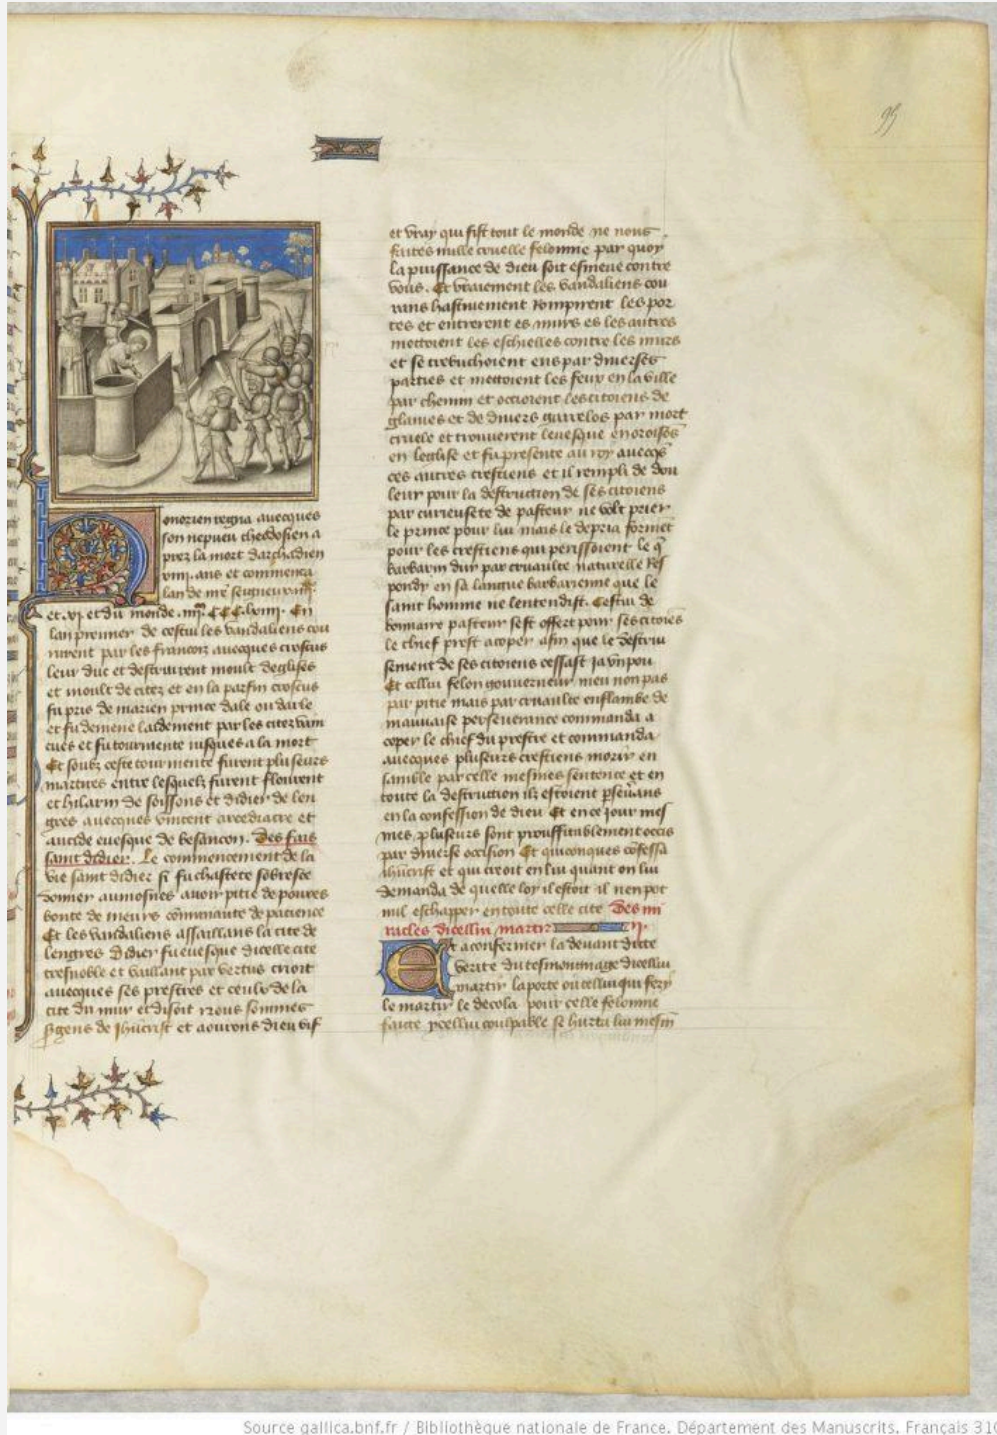 95
onorien regna avecques
son nepueu theodosien a
prez la mort darchadien
ans et commenca
lan de nre seigneur
et du monde
lan premier de cestui les vandaliens cou
rurent par les francois avecques croscus
leur duc et destruirent moult deglises
et moult de citez et en la parfin croscus
fu pris de marien prince dale ou darle
et fu demene laidement par les citez vain
cues et fu tourmente iusques a la mort
Et soubz ceste tourmente furent pluseurs
martires entre lesquelz furent florient
et hilarin de soissons et didier de len
gres avecques vincent arcediacre et
evesque de besancon. Des fais
saint didier. Le commencement de la
vie saint didier si fu chastete sobresce
donner aumosnes avoir pitie de povres
bonte de meurs de pacience
Et les vandaliens assaillans la cite de
lengres didier fu evesque dicelle cite
tresnoble et vaillant par vertus criort
avecques ses prestres et ceulx de la
cite du mur et disoit nous sommes
gens de jhucrist et aourons dieu vif
et vray qui fist tout le monde ne nous
faites nulle cruelle felonnie par quoy
la puissance de dieu soit esmeue contre
vous. Et vraiement les vandaliens cou
rans hastivement rompirent les por
tes et entrerent es murs et les autres
mettoient les eschielles contre les murs
et se trebuchoient ens par diverses
parties et mettoient les feux en la ville
par chemin et occioient les citoiens de
glaives et de divers garrelos par mort
cruele et trouverent levesque en oroisons
en leglise et fu presente au roy avecqs
ces autres crestiens et il rempli de dou
leur pour la destruction de ses citoiens
par curieusete de pasteur ne volt prier
le prince pour lui mais le depria forment
pour les crestiens qui perissoient le q
barbarin dur par cruaulte naturelle res
pondy en sa langue barbarienne que le
saint homme ne lentendist. Cestui de
bonnaire pasteur sest offert pour ses citoies
le chief prest a coper afin que le destrui
sement de ses citoiens cessast ja un pou
Et cellui felon gouverneur meu non pas
par pitie mais par cruaulte enflambe de
mauvaise perseverance commanda a
coper le chief du prestre et commanda
avecques pluseurs crestiens morir en
samble par celle mesmes sentence et en
toute la destruction ilz estoient
en la confession de dieu Et en ce jour mes
mes pluseurs sont prouffitablement occis
par diverse occision Et quiconques cofessa
jhucrist et qui creoit en lui quant on lui
demanda de quelle loy il estoit il nen pot
nul eschapper en toute celle cite Des mi
racles dicellui martir
Et a confermer la devant dicte
verite du tesmoingnage dicellui
martir la porte ou cellui qui fery
le martir le decola pour celle felonnie
faicte ycellui coulpable se hurta lui mesm
Source gallica.bnf.fr / Bibliothèque nationale de France. Département des Manuscrits. Français 310